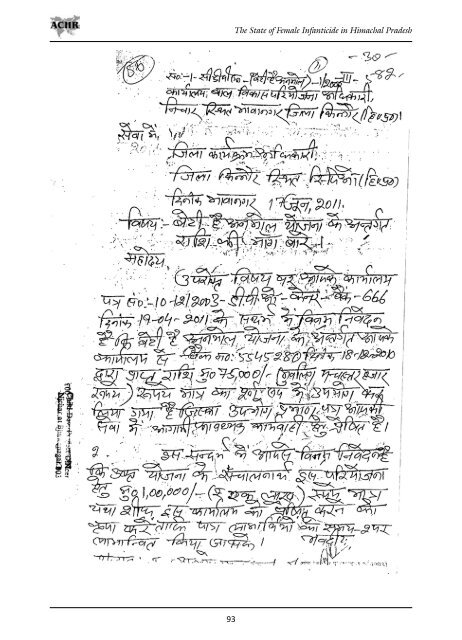 ACHR
The State of Female Infanticide in Himachal Pradesh
-30-
कार्यालय बाल विकास परियोजना अधिकारी,
निचार स्थित भावानगर जिला किन्नौर (हि0प्र0)
सेवा में,
जिला कार्यक्रम अधिकारी,
जिला किन्नौर स्थित रिकांगपिओ (हि0प्र0)
दिनांक भावानगर 17 जून, 2011.
विषय:- बेटी है अनमोल योजना के अन्तर्गत
राशि की मांग बारे।
महोदय,
उपरोक्त विषय पर आपके कार्यालय
पत्र सं0:-10-12/2003- -666
दिनांक 19-04-2011 के सदर्भ में विनम्र निवेदन
है कि बेटी है अनमोल योजना के अन्तर्गत आपके
कार्यालय से चैक नं0: 554528 दिनांक 18-12-2010
द्वारा प्राप्त राशि मु0 75,000/- हजार
रूपये) रूपये मात्र का पूर्ण रूप से उपयोग कर
लिया गया है जिसका उपयोगिता प्रमाण पत्र आपकी
सेवा में आगामी आवश्यक कार्यवाही हेतु प्रेषित है।
2. इस सन्दर्भ में आपसे विनम्र निवेदन है
कि उक्त योजना के संचालनार्थ इस परियोजना
हेतु मु0 1,00,000/- (रू एक लाख) रूपये मात्र
यथा शीघ्र इस कार्यालय को प्रेषित करने की
कृपा करें ताकि पात्र लाभार्थियों को समय पर
लाभान्वित किया जा सके।
भवदीय,
93